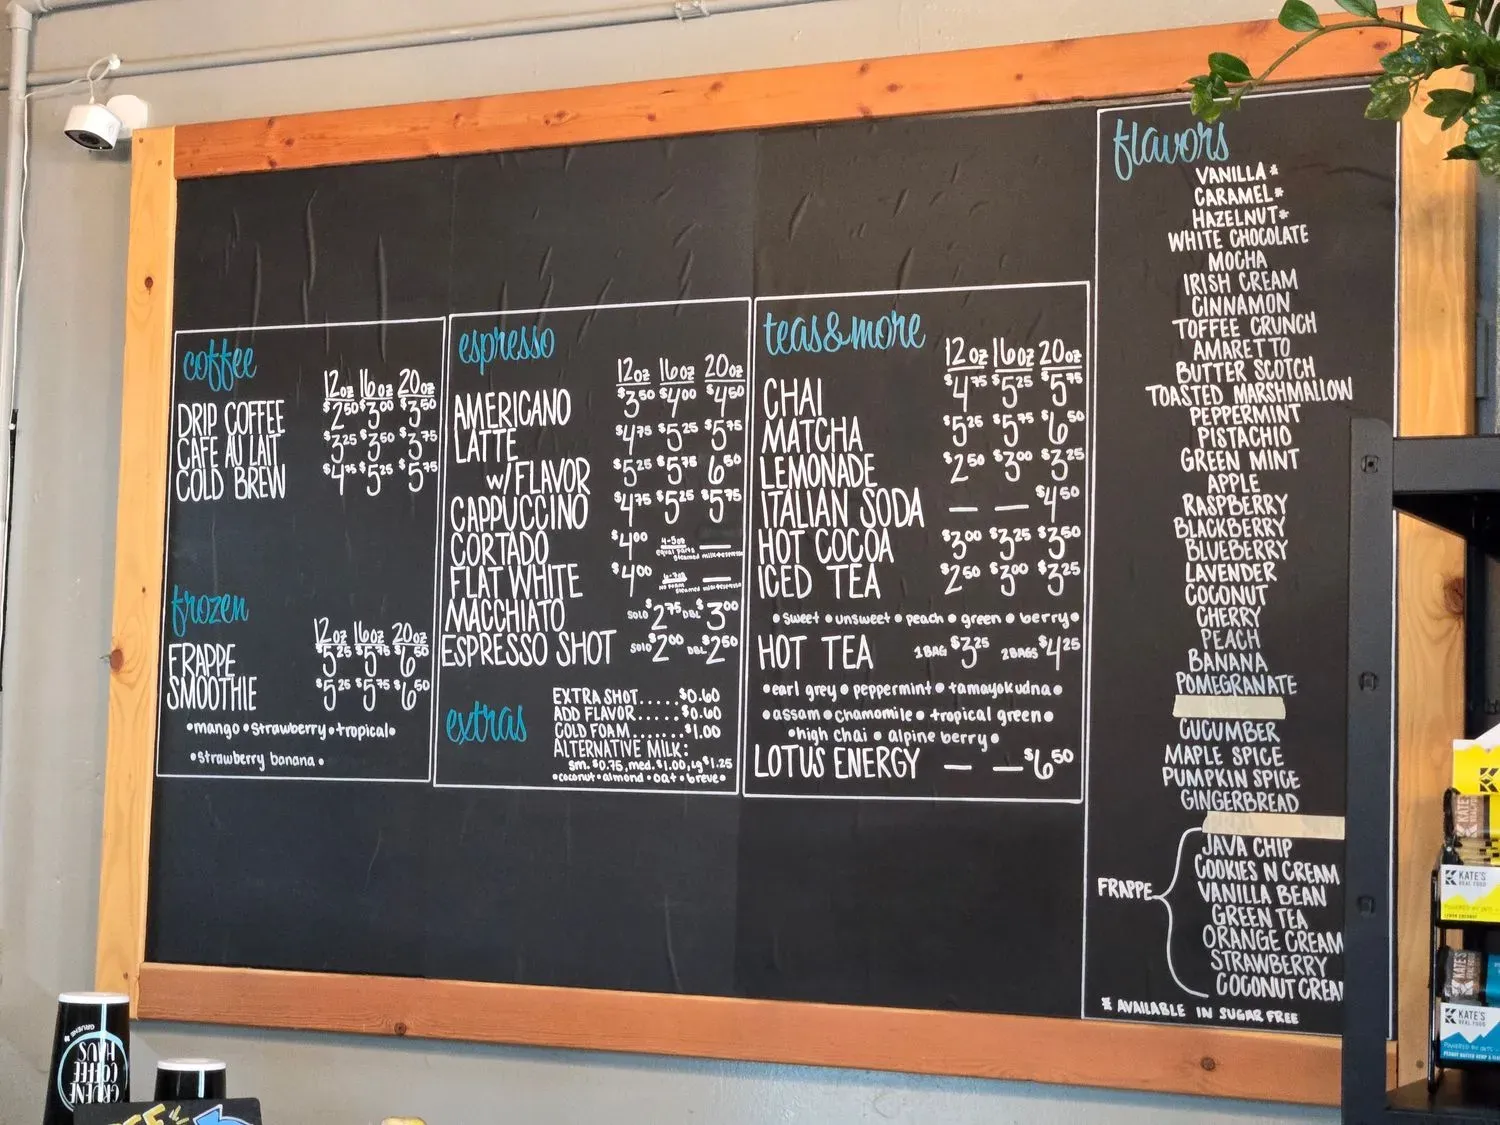 coffee
12oz 16oz 20oz
DRIP COFFEE $2⁵⁰ $3⁰⁰ $3⁵⁰
CAFE AU LAIT $3²⁵ $3⁵⁰ $3⁷⁵
COLD BREW $4⁷⁵ $5²⁵ $5⁷⁵
frozen
12oz 16oz 20oz
FRAPPE $5²⁵ $5⁷⁵ $6⁵⁰
SMOOTHIE $5²⁵ $5⁷⁵ $6⁵⁰
•mango •strawberry •tropical•
•strawberry banana•
espresso
12oz 16oz 20oz
AMERICANO $3⁵⁰ $4⁰⁰ $4⁵⁰
LATTE $4⁷⁵ $5²⁵ $5⁷⁵
w/FLAVOR $5²⁵ $5⁷⁵ 6⁵⁰
CAPPUCCINO $4⁷⁵ $5²⁵ $5⁷⁵
CORTADO $4⁰⁰ 4-5oz —
equal parts steamed milk+espresso
FLAT WHITE $4⁰⁰ —
no foam steamed milk+espresso
MACCHIATO SOLO $2⁷⁵ DBL $3⁰⁰
ESPRESSO SHOT SOLO $2⁰⁰ DBL $2⁵⁰
extras
EXTRA SHOT.....$0.60
ADD FLAVOR.....$0.60
COLD FOAM.......$1.00
ALTERNATIVE MILK:
sm. $0.75, med. $1.00, lg $1.25
•coconut•almond•oat•breve•
teas&more
12oz 16oz 20oz
CHAI $4⁷⁵ $5²⁵ $5⁷⁵
MATCHA $5²⁵ $5⁷⁵ $6⁵⁰
LEMONADE $2⁵⁰ $3⁰⁰ $3²⁵
ITALIAN SODA — — $4⁵⁰
HOT COCOA $3⁰⁰ $3²⁵ $3⁵⁰
ICED TEA $2⁵⁰ $3⁰⁰ $3²⁵
•sweet •unsweet •peach •green •berry•
HOT TEA 1 BAG $3²⁵ 2 BAGS $4²⁵
•earl grey• peppermint •tamayokudna•
•assam •chamomile •tropical green•
•high chai • alpine berry•
LOTUS ENERGY — — $6⁵⁰
flavors
VANILLA*
CARAMEL*
HAZELNUT*
WHITE CHOCOLATE
MOCHA
IRISH CREAM
CINNAMON
TOFFEE CRUNCH
AMARETTO
BUTTER SCOTCH
TOASTED MARSHMALLOW
PEPPERMINT
PISTACHIO
GREEN MINT
APPLE
RASPBERRY
BLACKBERRY
BLUEBERRY
LAVENDER
COCONUT
CHERRY
PEACH
BANANA
POMEGRANATE
CUCUMBER
MAPLE SPICE
PUMPKIN SPICE
GINGERBREAD
FRAPPE
JAVA CHIP
COOKIES N CREAM
VANILLA BEAN
GREEN TEA
ORANGE CREAM
STRAWBERRY
COCONUT CREA
* AVAILABLE IN SUGAR FREE
KATE'S
REAL FOOD
KATE'S
REAL FOOD
GRUENE
COFFEE
HAUS